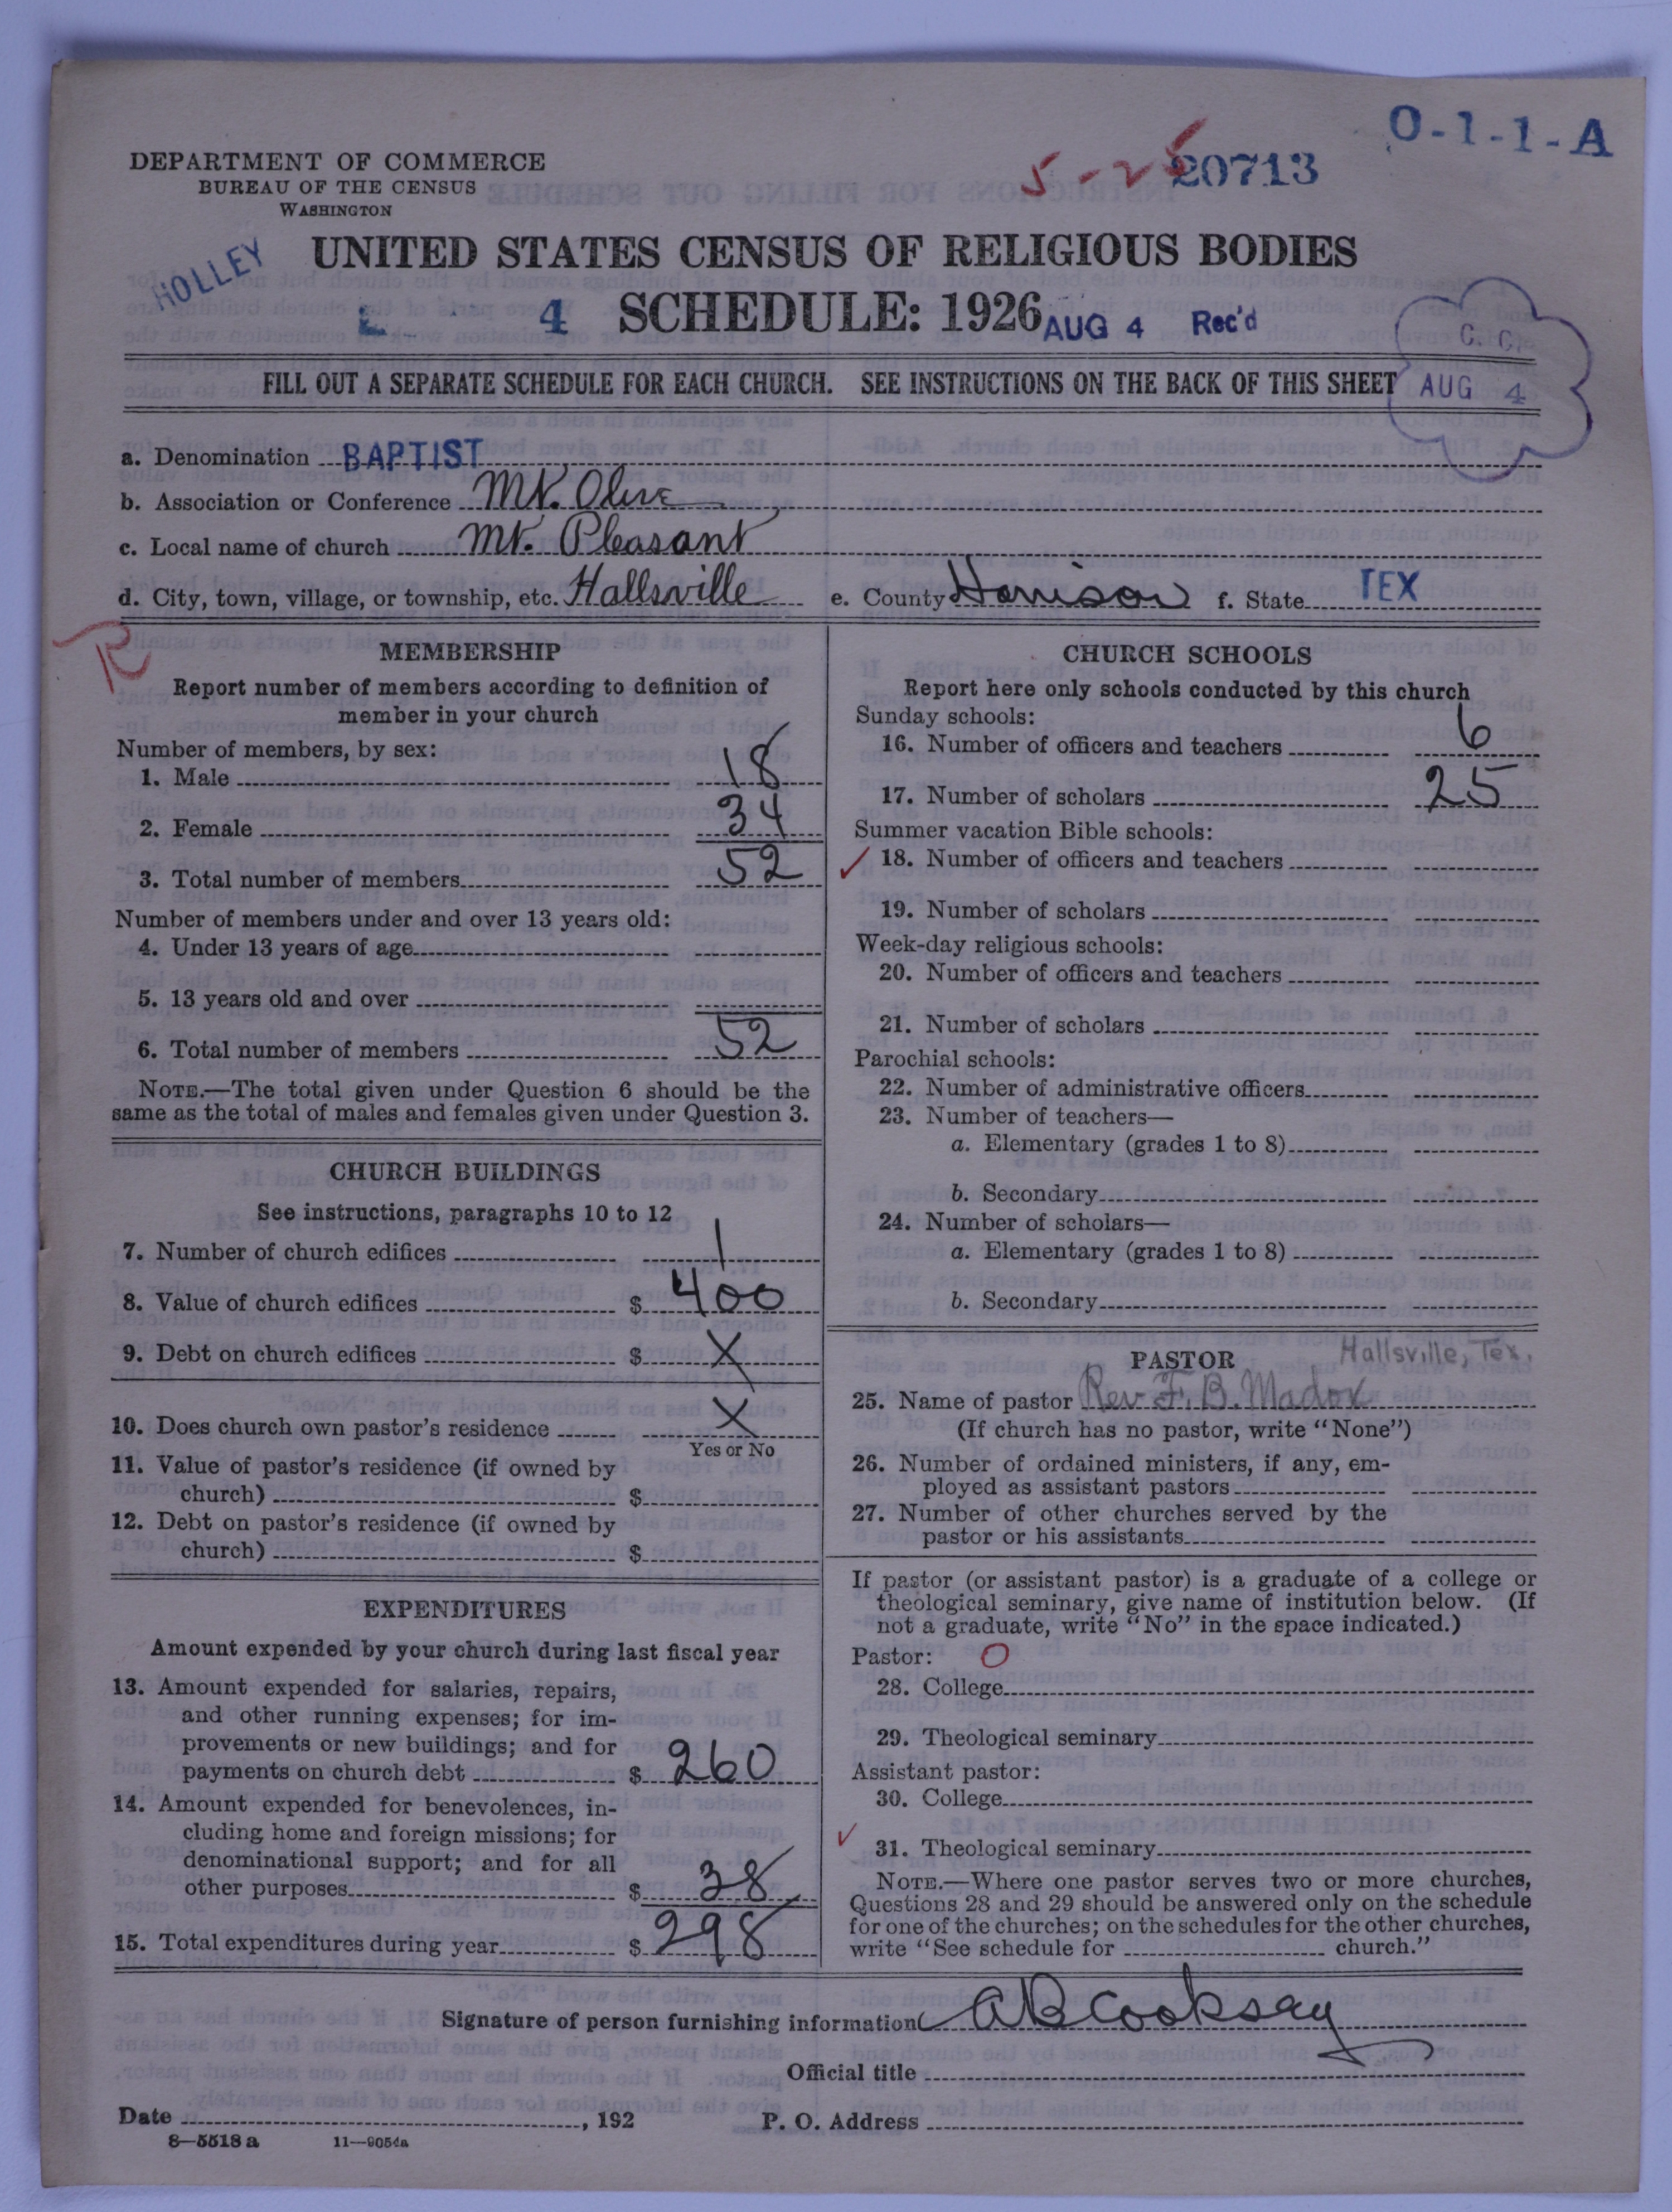 O-1-1-A
DEPARTMENT OF COMMERCE
BUREAU OF THE CENSUS
WASHINGTON
5-25 20713
HOLLEY
UNITED STATES CENSUS OF RELIGIOUS BODIES
4 SCHEDULE: 1926 AUG 4 Rec'd
C. C.
AUG 4
FILL OUT A SEPARATE SCHEDULE FOR EACH CHURCH. SEE INSTRUCTIONS ON THE BACK OF THIS SHEET
a. Denomination BAPTIST
b. Association or Conference Mt. Olive
c. Local name of church Mt. Pleasant
d. City, town, village, or township, etc. Hallsville e. County Harrison f. State TEX
R
MEMBERSHIP
Report number of members according to definition of
member in your church
Number of members, by sex:
1. Male 18
2. Female 34
3. Total number of members 52
Number of members under and over 13 years old:
4. Under 13 years of age
5. 13 years old and over
6. Total number of members 52
NOTE.—The total given under Question 6 should be the
same as the total of males and females given under Question 3.
CHURCH BUILDINGS
See instructions, paragraphs 10 to 12
7. Number of church edifices 1
8. Value of church edifices $ 400
9. Debt on church edifices $ X
10. Does church own pastor's residence X
Yes or No
11. Value of pastor's residence (if owned by
church) $
12. Debt on pastor's residence (if owned by
church) $
EXPENDITURES
Amount expended by your church during last fiscal year
13. Amount expended for salaries, repairs,
and other running expenses; for im-
provements or new buildings; and for
payments on church debt $ 260
14. Amount expended for benevolences, in-
cluding home and foreign missions; for
denominational support; and for all
other purposes $ 38
15. Total expenditures during year $ 298
CHURCH SCHOOLS
Report here only schools conducted by this church
Sunday schools:
16. Number of officers and teachers 6
17. Number of scholars 25
Summer vacation Bible schools:
✓ 18. Number of officers and teachers
19. Number of scholars
Week-day religious schools:
20. Number of officers and teachers
21. Number of scholars
Parochial schools:
22. Number of administrative officers
23. Number of teachers—
a. Elementary (grades 1 to 8)
b. Secondary
24. Number of scholars—
a. Elementary (grades 1 to 8)
b. Secondary
PASTOR Hallsville, Tex.
25. Name of pastor Rev F. B. Madox
(If church has no pastor, write "None")
26. Number of ordained ministers, if any, em-
ployed as assistant pastors
27. Number of other churches served by the
pastor or his assistants
If pastor (or assistant pastor) is a graduate of a college or
theological seminary, give name of institution below. (If
not a graduate, write "No" in the space indicated.)
Pastor: O
28. College
29. Theological seminary
Assistant pastor:
30. College
✓ 31. Theological seminary
NOTE.—Where one pastor serves two or more churches,
Questions 28 and 29 should be answered only on the schedule
for one of the churches; on the schedules for the other churches,
write "See schedule for church."
Signature of person furnishing information A B Cooksey
Official title
Date , 192 P. O. Address
8—5518 a 11—9054a